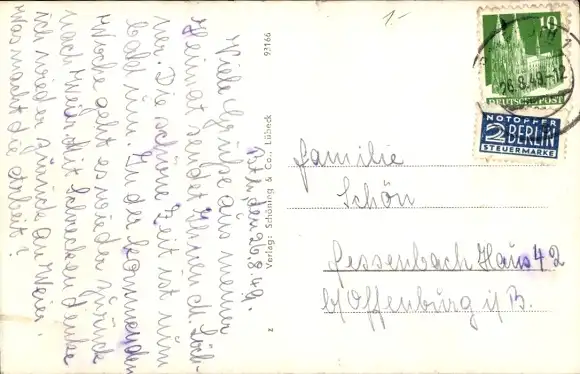 1.-
10
26.8.49.-12
DEUTSCHE POST
NOTOPFER
2 BERLIN
STEUERMARKE
den 26.8.49.
Viele Grüße aus meiner
Heimat sendet Ihnen
Die schöne Zeit ist nun
bald rum. In der kommenden
Woche geht es wieder zurück
nach Weier. Mit Schrecken denke
ich wieder zurück an Weier.
Was macht die Arbeit?
Verlag: Schöning & Co., Lübeck
93166
z
Familie
Schön
Fessenbach Haus 42
b/ Offenburg i/B.